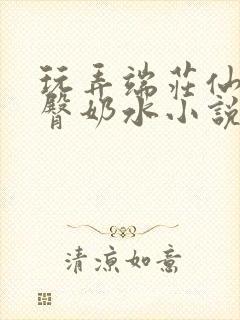 玩弄端莊仙
臀奶水小說
清涼如意